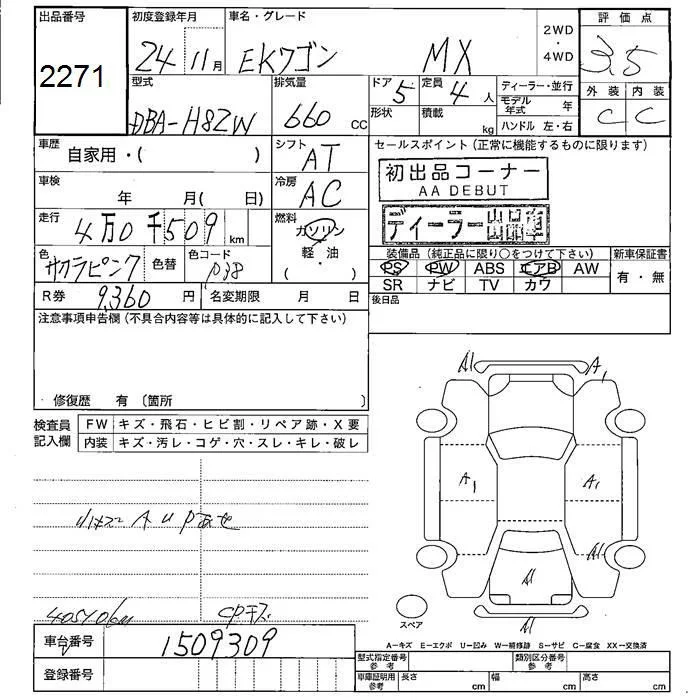 出品番号 初度登録年月 車名・グレード 2WD・4WD 評価点
2271 24 11月 EKワゴン MX 3.5
型式 排気量 ドア 5 定員 4人 ディーラー・並行 外装 内装
DBA-H82W 660 CC 形状 積載 kg モデル年式 年 C C
ハンドル 左・右
車歴 自家用・( ) シフト AT セールスポイント(正常に機能するものに限ります)
初出品コーナー
AA DEBUT
車検 年 月( 日) 冷房 AC
ディーラー出品車
走行 4万0千509 km 燃料 ガソリン
軽・油
( ・ )
色 サクラピンク 色替 色コード P38 装備品(純正品に限り○をつけて下さい) 新車保証書
PS PW ABS エアB AW 有・無
SR ナビ TV カワ
R券 9,360円 名変期限 月 日 後日品
注意事項申告欄(不具合内容等は具体的に記入して下さい)
修復歴 有 〔箇所 〕
検査員記入欄 FW キズ・飛石・ヒビ割・リペア跡・X要
内装 キズ・汚レ・コゲ・穴・スレ・キレ・破レ
A1 A1
A1 A1
小キズ AUP
A1
A1
キズ
A1
スペア
A−キズ E−エクボ U−凹み W−補修跡 S−サビ C−腐食 XX−交換済
車台番号 1509309
型式指定番号 参考 類別区分番号 参考
登録番号 車庫証明用 参考 長さ cm 幅 cm 高さ cm